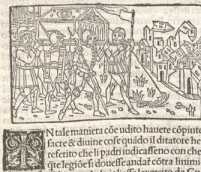 IN tale maniera cõe udito havete cõpinte
sacre & divine cose quãdo il ditatore he
referito che li padri indicasseno con che
q̃te legiõe si douesse andar̃ cõtra linimi